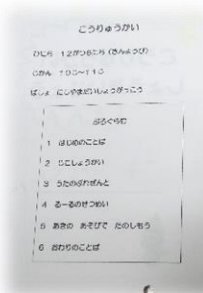 こうりゅうかい
ひにち 12がつ6にち (きんようび)
じかん
ばしょ にしやまだいしょうがっこう
ぷろぐらむ
1 はじめのことば
2 じこしょうかい
3 うたのぷれぜんと
4 るーるのせつめい
5 あきの あそびで たのしもう
6 おわりのことば